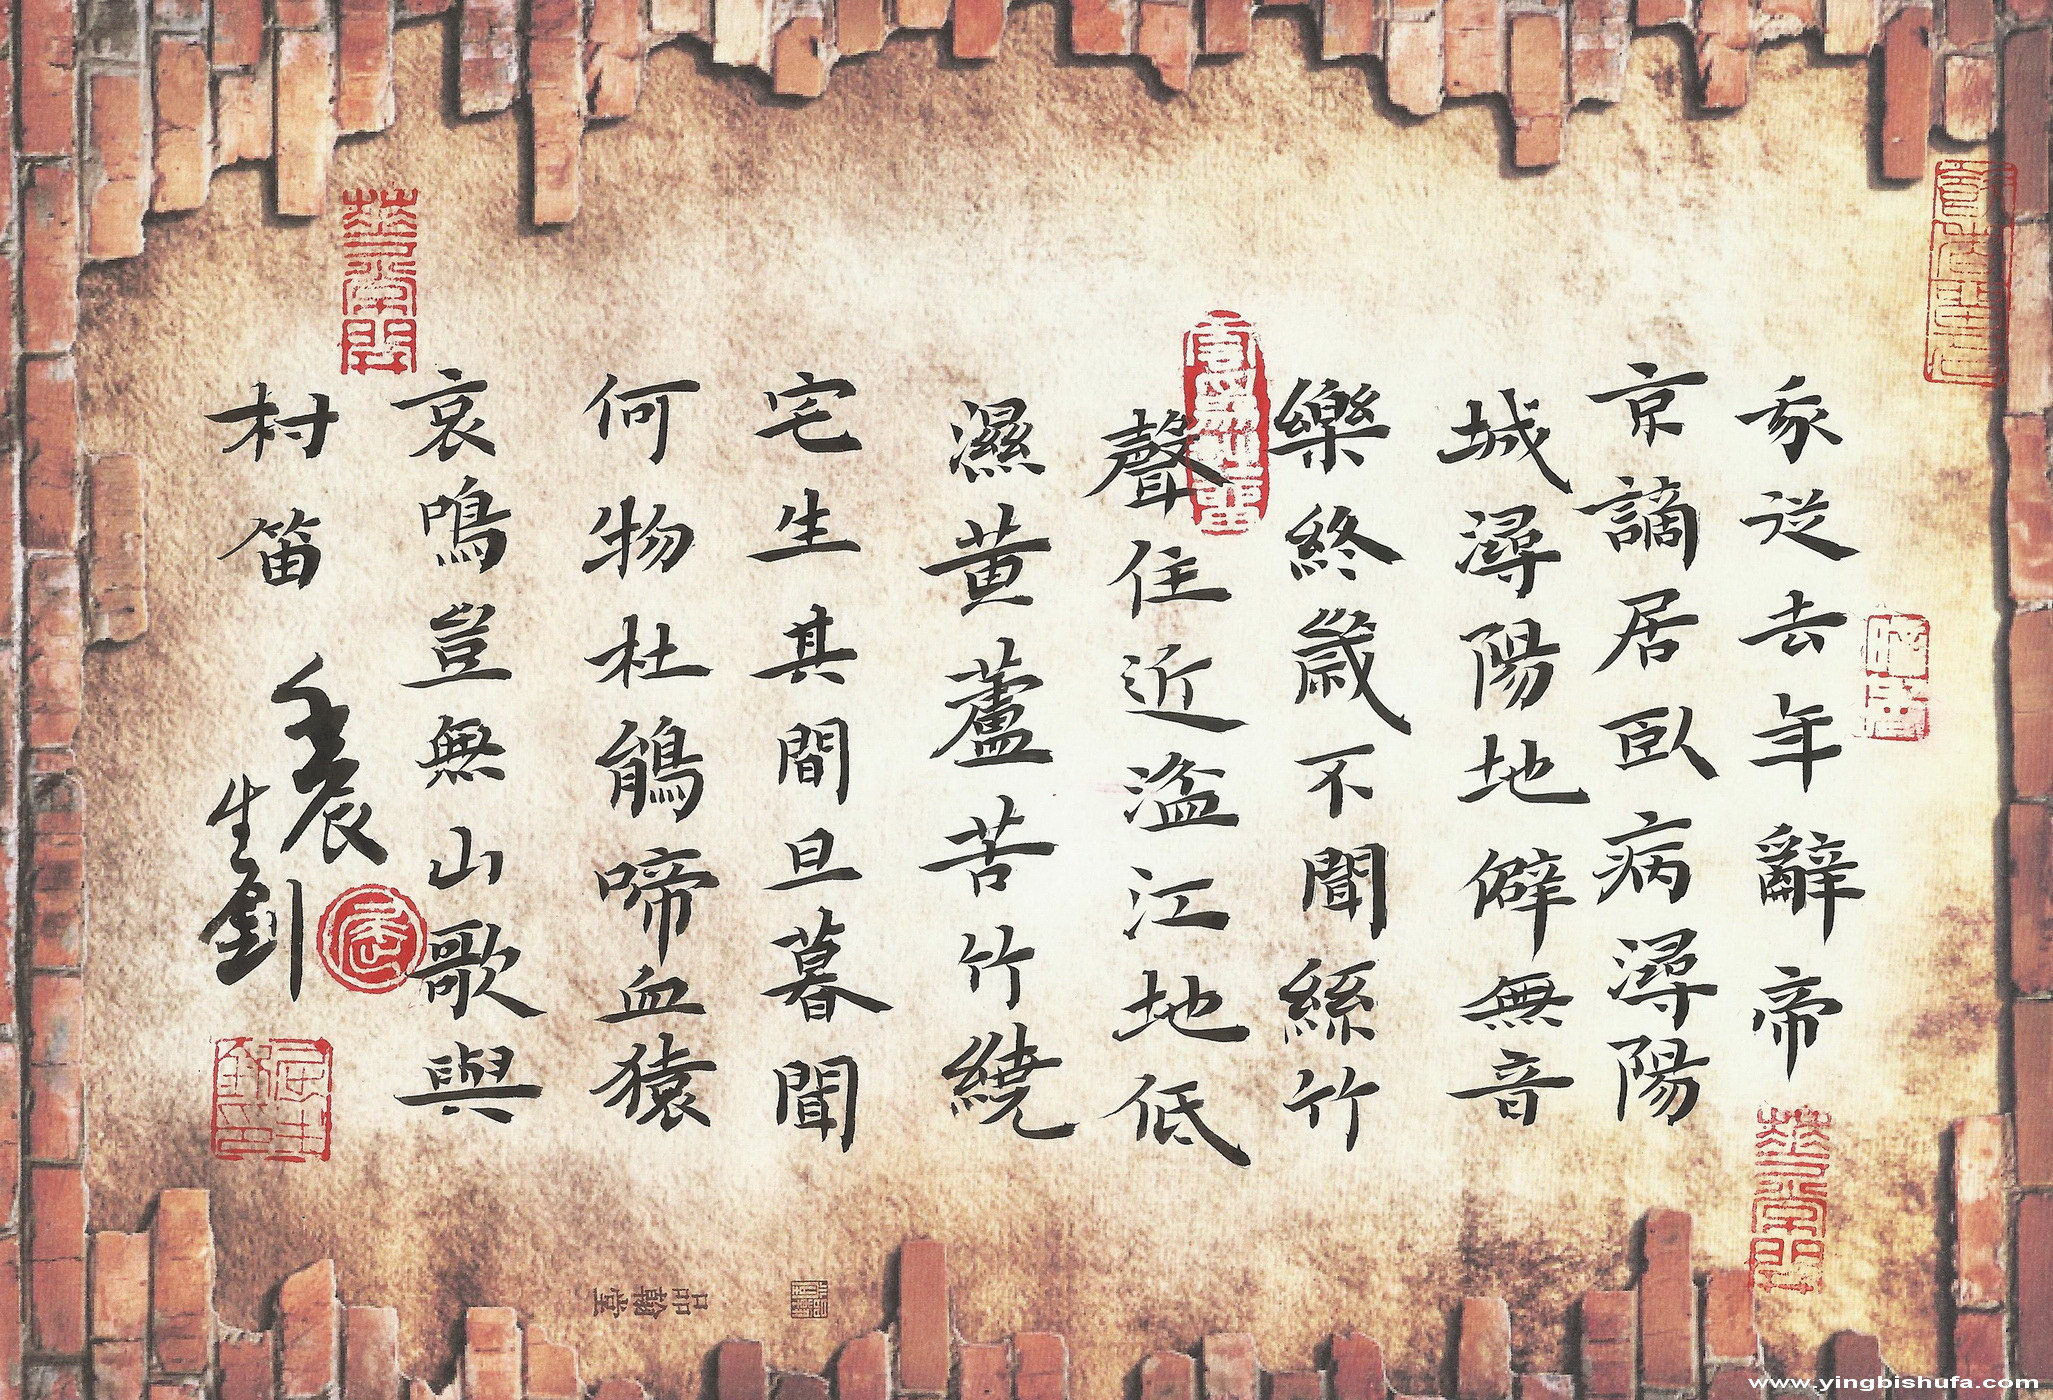 我從去年辭帝
京謫居臥病潯陽
城潯陽地僻無音
樂終歲不聞絲竹
聲住近湓江地低
濕黄蘆苦竹繞
宅生其間旦暮聞
何物杜鵑啼血猿
哀鳴豈無山歌與
村笛
壬辰
生釗
品翰堂
www.yingbishufa.com